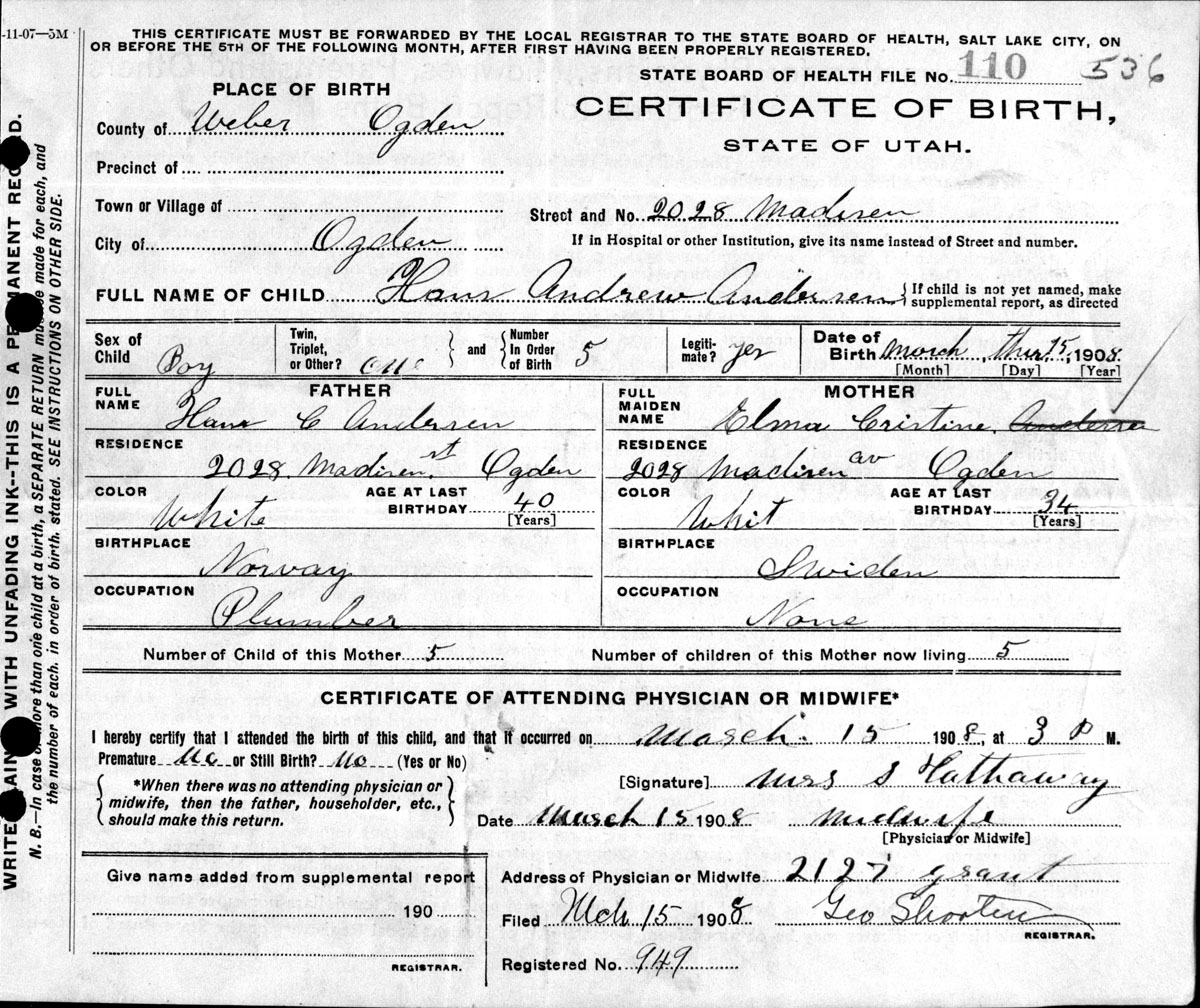 -11-07—5M
THIS CERTIFICATE MUST BE FORWARDED BY THE LOCAL REGISTRAR TO THE STATE BOARD OF HEALTH, SALT LAKE CITY, ON
OR BEFORE THE 5TH OF THE FOLLOWING MONTH, AFTER FIRST HAVING BEEN PROPERLY REGISTERED.
STATE BOARD OF HEALTH FILE NO. 110 536
PLACE OF BIRTH
CERTIFICATE OF BIRTH,
STATE OF UTAH.
County of Weber Ogden
Precinct of
Town or Village of
Street and No. 2028 Madisen
City of Ogden
If in Hospital or other Institution, give its name instead of Street and number.
FULL NAME OF CHILD Hans Andrew Andersen { If child is not yet named, make
supplemental report, as directed
Sex of Child Boy
Twin, Triplet, or Other? one } and { Number In Order of Birth 5
Legiti-mate? yes
Date of Birth March thir 15, 1908
[Month] [Day] [Year]
FATHER
FULL NAME Hans C Andersen
RESIDENCE
2028 Madisen st Ogden
COLOR White AGE AT LAST BIRTHDAY 40
[Years]
BIRTHPLACE
Norway
OCCUPATION
Plumber
MOTHER
FULL MAIDEN NAME Elma Cristine Andersen
RESIDENCE
2028 Madisen av Ogden
COLOR Whit AGE AT LAST BIRTHDAY 34
[Years]
BIRTHPLACE
Swiden
OCCUPATION
None
Number of Child of this Mother 5 Number of children of this Mother now living 5
CERTIFICATE OF ATTENDING PHYSICIAN OR MIDWIFE*
I hereby certify that I attended the birth of this child, and that it occurred on March 15 1908, at 3 P M.
Premature No or Still Birth? No (Yes or No)
{ *When there was no attending physician or
midwife, then the father, householder, etc.,
should make this return. }
[Signature] Mrs S Hathaway
Date March 15 1908 Midwife
[Physician or Midwife]
Give name added from supplemental report
190
REGISTRAR.
Address of Physician or Midwife 2127 grant
Filed Mch 15 1908 Geo Shorten
REGISTRAR.
Registered No. 949
WRITE PLAINLY WITH UNFADING INK--THIS IS A PERMANENT RECORD.
N. B.—In case of more than one child at a birth, a SEPARATE RETURN must be made for each, and
the number of each, in order of birth, stated. SEE INSTRUCTIONS ON OTHER SIDE.